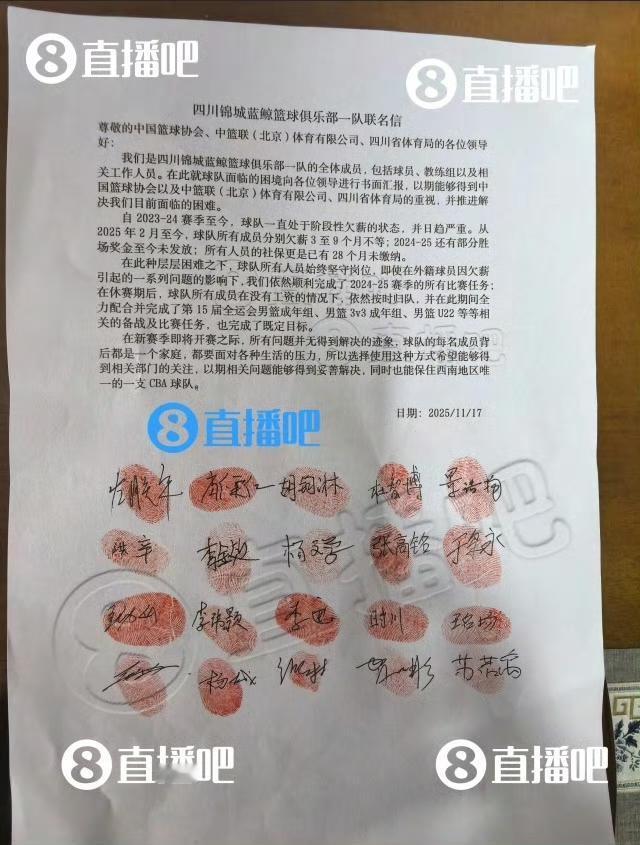 直播吧
直播吧
四川锦城蓝鲸篮球俱乐部一队联名信
尊敬的中国篮球协会、中篮联（北京）体育有限公司、四川省体育局的各位领导
好：
我们是四川锦城蓝鲸篮球俱乐部一队的全体成员，包括球员、教练组以及相
关工作人员。在此就球队面临的困境向各位领导进行书面汇报，以期能够得到中
国篮球协会以及中篮联（北京）体育有限公司、四川省体育局的重视，并推进解
决我们目前面临的困难。
自 2023-24 赛季至今，球队一直处于阶段性欠薪的状态，并日趋严重。从
2025 年 2 月至今，球队所有成员分别欠薪 3 至 9 个月不等；2024-25 还有部分胜
场奖金至今未发放；所有人员的社保更是已有 28 个月未缴纳。
在此种层层困难之下，球队所有人员始终坚守岗位，即使在外籍球员因欠薪
引起的一系列问题的影响下，我们依然顺利完成了 2024-25 赛季的所有比赛任务；
在休赛期后，球队所有成员在没有工资的情况下，依然按时归队，并在此期间全
力配合并完成了第 15 届全运会男篮成年组、男篮 3v3 成年组、男篮 U22 等等相
关的备战及比赛任务，也完成了既定目标。
在新赛季即将开赛之际，所有问题并无得到解决的迹象，球队的每名成员背
后都是一个家庭，都要面对各种生活的压力，所以选择使用这种方式希望能够得
到相关部门的关注，以期相关问题能够得到妥善解决，同时也能保住西南地区唯
一的一支 CBA 球队。
日期：2025/11/17
直播吧
杜智博 景浩扬
杨文学 张高铭
李祎颖 季迅 时川
直播吧
直播吧
直播吧